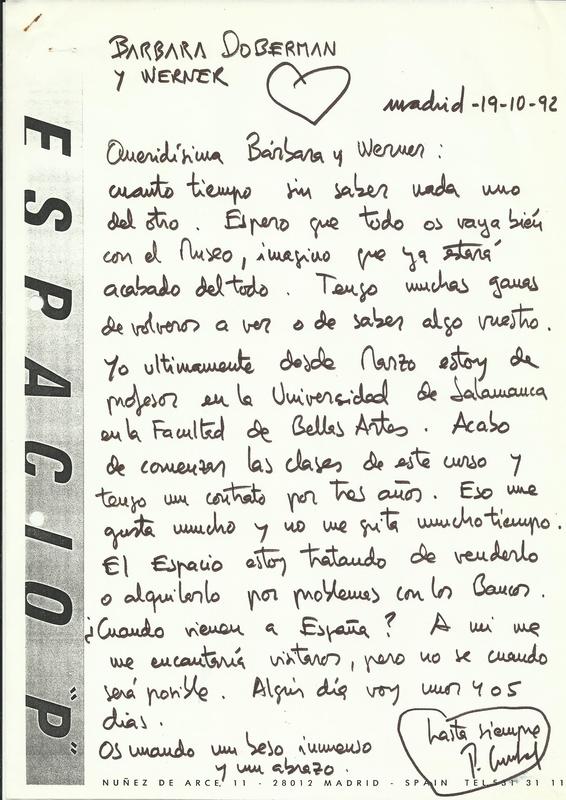 BARBARA DOBERMAN
Y WERNER
madrid -19-10-92
ESPACIO "P"
Queridísima Bárbara y Werner:
cuanto tiempo sin saber nada uno
del otro. Espero que todo os vaya bién
con el Museo, imagino que ya estará
acabado del todo. Tengo muchas ganas
de volveros a ver o de saber algo vuestro.
Yo ultimamente desde Marzo estoy de
profesor en la Universidad de Salamanca
en la Facultad de Bellas Artes. Acabo
de comenzar las clases de este curso y
tengo un contrato por tres años. Eso me
gusta mucho y no me quita mucho tiempo.
El Espacio estoy tratando de venderlo
o alquilarlo por problemas con los Bancos.
¿Cuando vienen a España? A mi me
me encantaría visitaros, pero no se cuando
será posible. Algún día voy unos 4 o 5
dias.
Os mando un beso inmenso
y un abrazo.
hasta siempre
P.
NUÑEZ DE ARCE, 11 - 28012 MADRID - SPAIN TEL 531 31 11